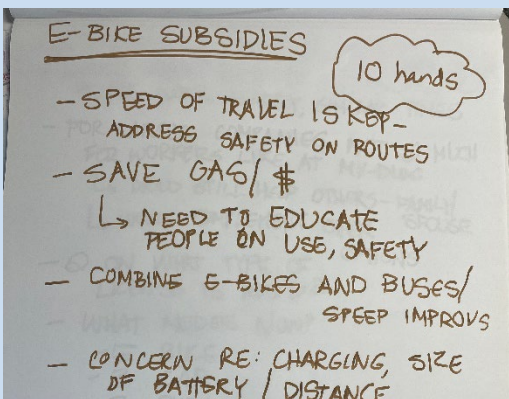 E-BIKE SUBSIDIES
10 hands
- SPEED OF TRAVEL IS KEY -
ADDRESS SAFETY ON ROUTES
- SAVE GAS/$
↳ NEED TO EDUCATE
PEOPLE ON USE, SAFETY
- COMBINE E-BIKES AND BUSES/
SPEED IMPROVS
- CONCERN RE: CHARGING, SIZE
OF BATTERY / DISTANCE